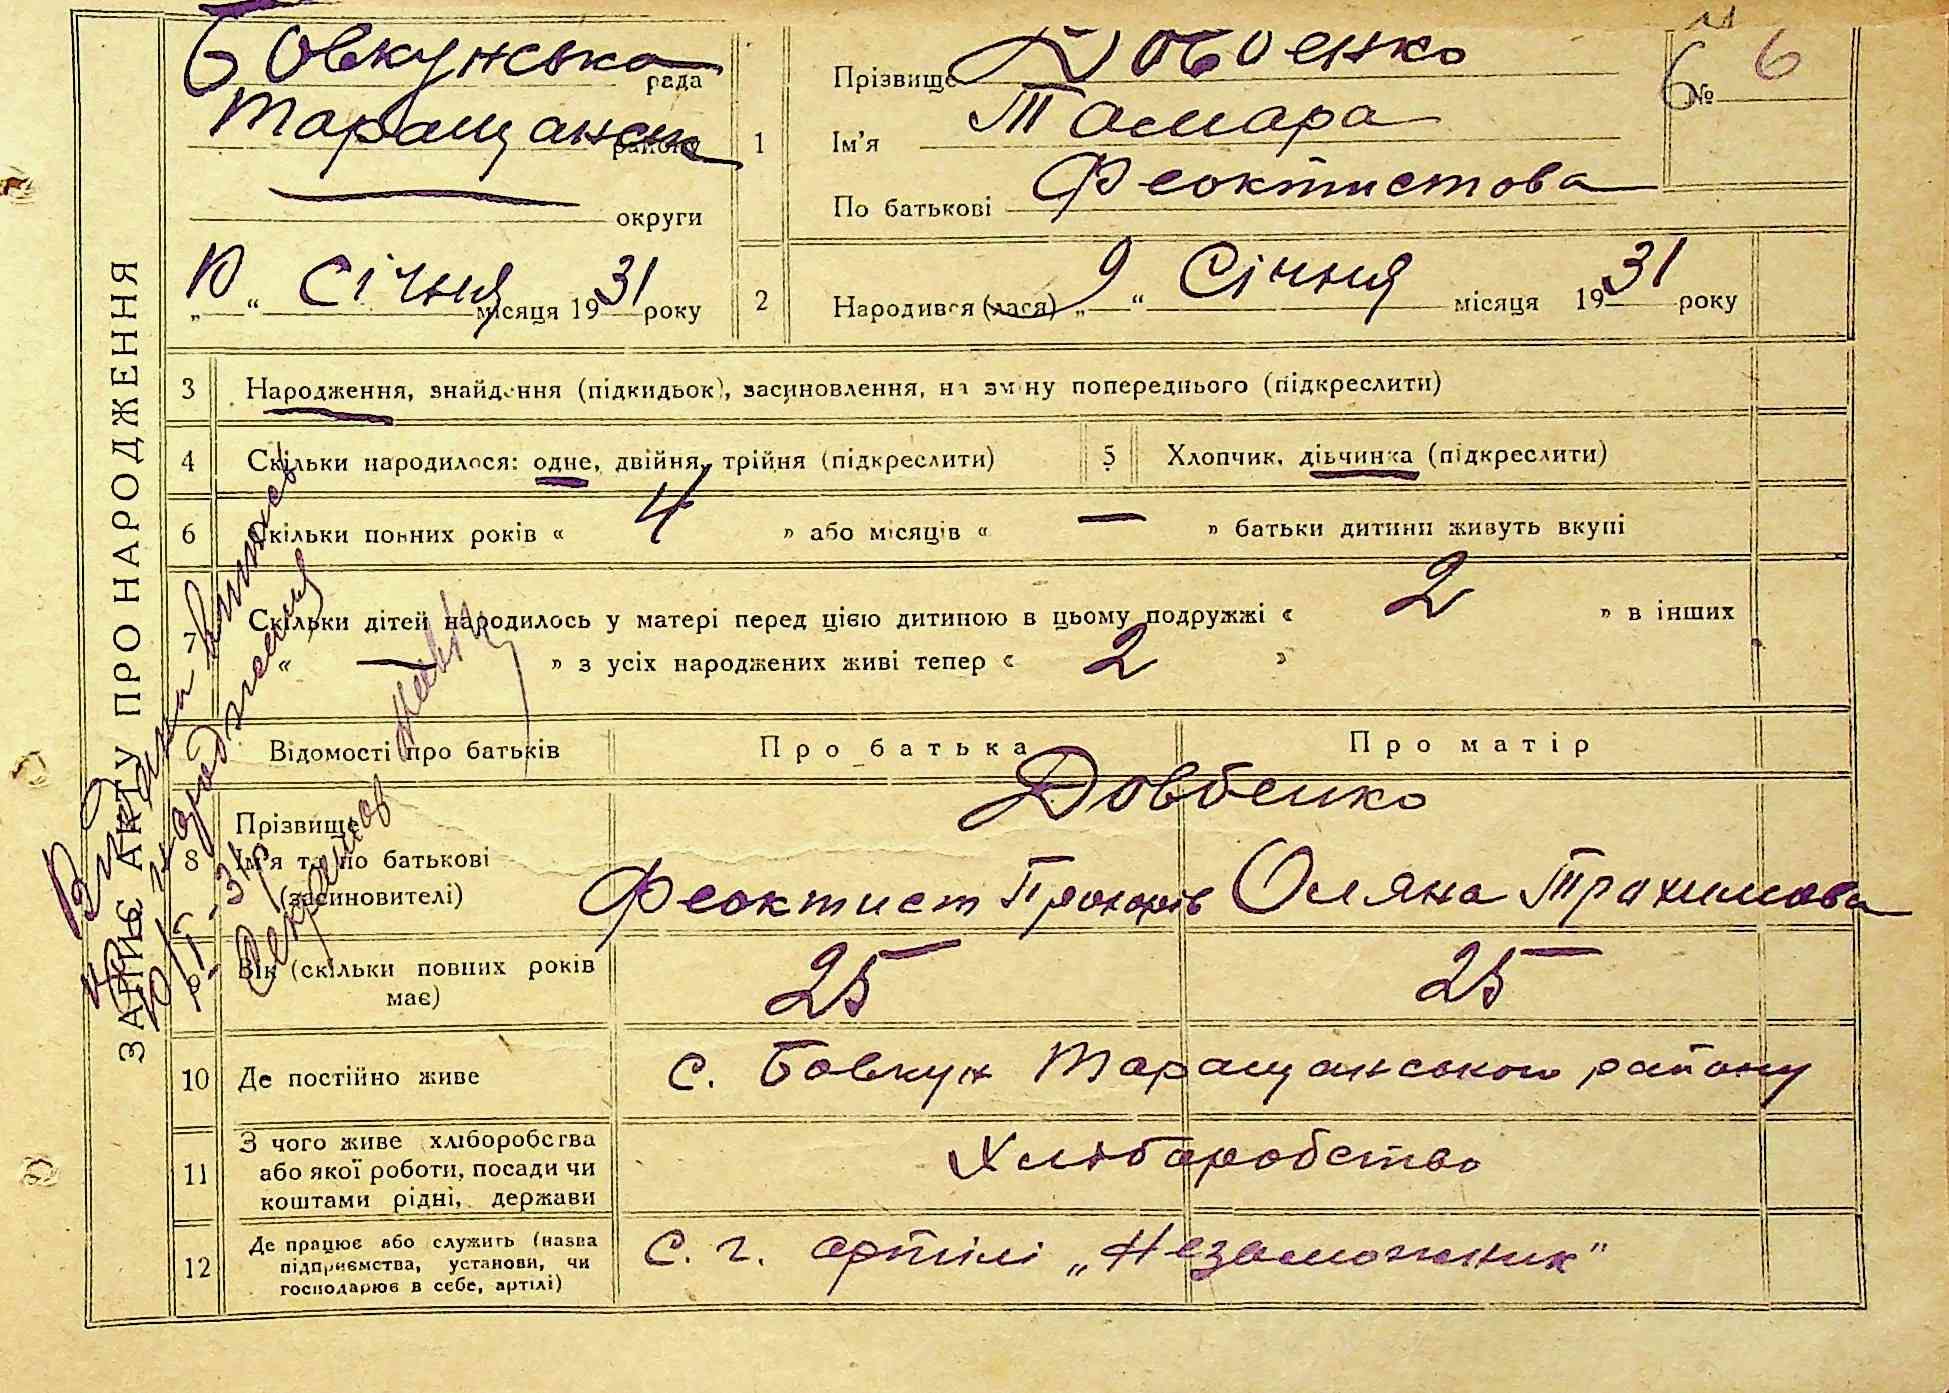 ЗАПИС АКТУ ПРО НАРОДЖЕННЯ
Бовкунська рада
Таращанськ району
округи
„10“ Січня місяця 1931 року
1
Прізвище Довбенко
Ім'я Тамара
По батькові Феоктистова
№ 6
6
2
Народився (лася) „9“ Січня місяця 1931 року
3 Народження, знайдення (підкидьок), засиновлення, на зміну попереднього (підкреслити)
4 Скільки народилося: одне, двійня, трійня (підкреслити)
5 Хлопчик, дівчинка (підкреслити)
6 Скільки повних років « 4 » або місяців « — » батьки дитини живуть вкупі
7 Скільки дітей народилось у матері перед цією дитиною в цьому подружжі « 2 » в інших
« — » з усіх народжених живі тепер « 2 »
Відомості про батьків
Про батька
Про матір
8 Прізвище
Ім'я та по батькові
(засиновителі)
Довбенко
Феоктист Прохорів
Оляна Трахимова
Вік (скільки повних років
має)
25
25
10 Де постійно живе
с. Бовкун Таращанського району
11 З чого живе хліборобства
або якої роботи, посади чи
коштами рідні, держави
Хліборобство
12 Де працює або служить (назва
підприємства, установи, чи
господарює в себе, артілі)
С. г. артілі „Незаможник"
Видана
народження
10/I-31 р.